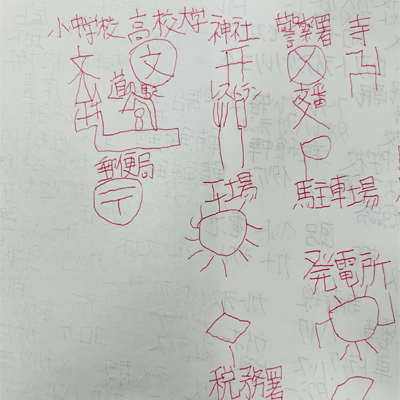 小中学校 高校大学 神社 警察署 寺
文 文
道の駅 レストラン 交番
郵便局 工場 駐車場
〒
発電所
税務署